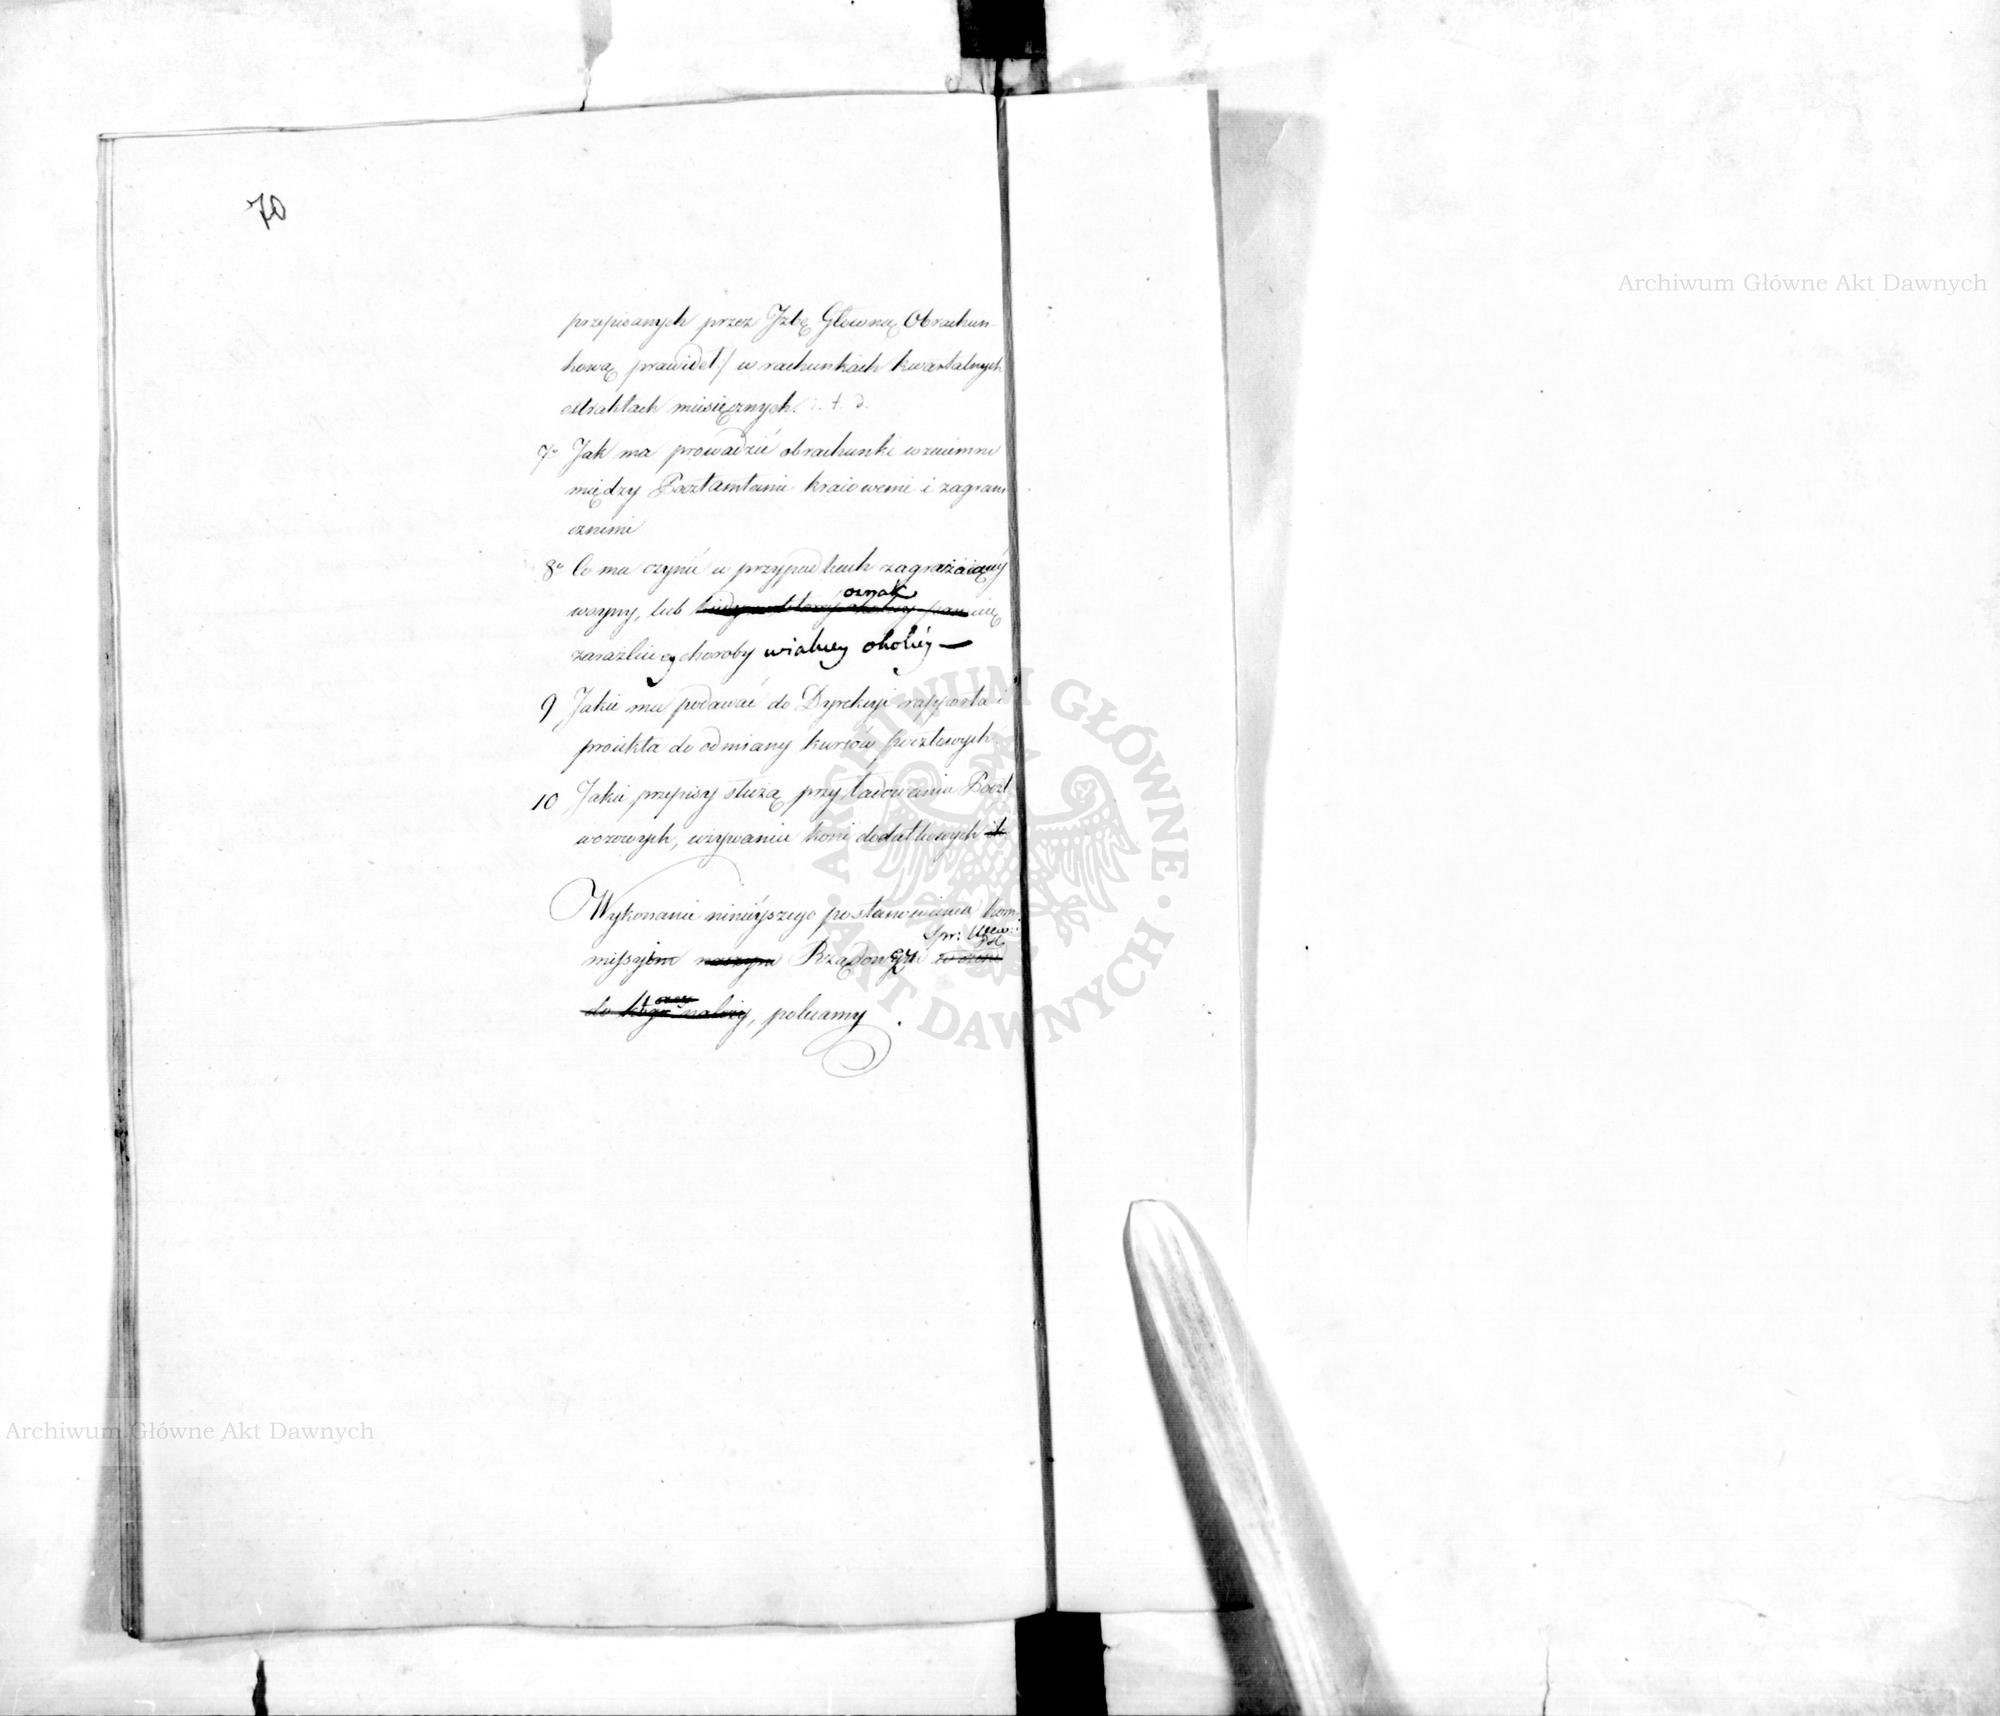 70
Archiwum Główne Akt Dawnych
przepisanych przez Jzbę Głowną Obrachun-
kową prawideł:/ w rachunkach kwartalnych
extraktach miesięcznych. i. t. d.
7o Jak ma prowadzić obrachunki wzaiemne
między Pocztamtami kraiowemi i zagrani
cznemi
8o Co ma czynić w przypadkach zagrażaiącéy
oznak
woyny, lub
zaraźliwey choroby w iakiey okolicy —
9 Jakie ma podawać do Dyrekcyi rapporta i
proiekta do odmiany kursów pocztowych.
10 Jakie przepisy służą przy ładowaniu Poczt
wozowych, używaniu koni dodatkowych
Wykonanie ninieyszego postanowienia Kom-
Spr: Wew:
Pol.
missyi naszym Rządowéy
do któréy należy, polecamy.
ARCHIWUM GŁÓWNE
AKT DAWNYCH
Archiwum Główne Akt Dawnych